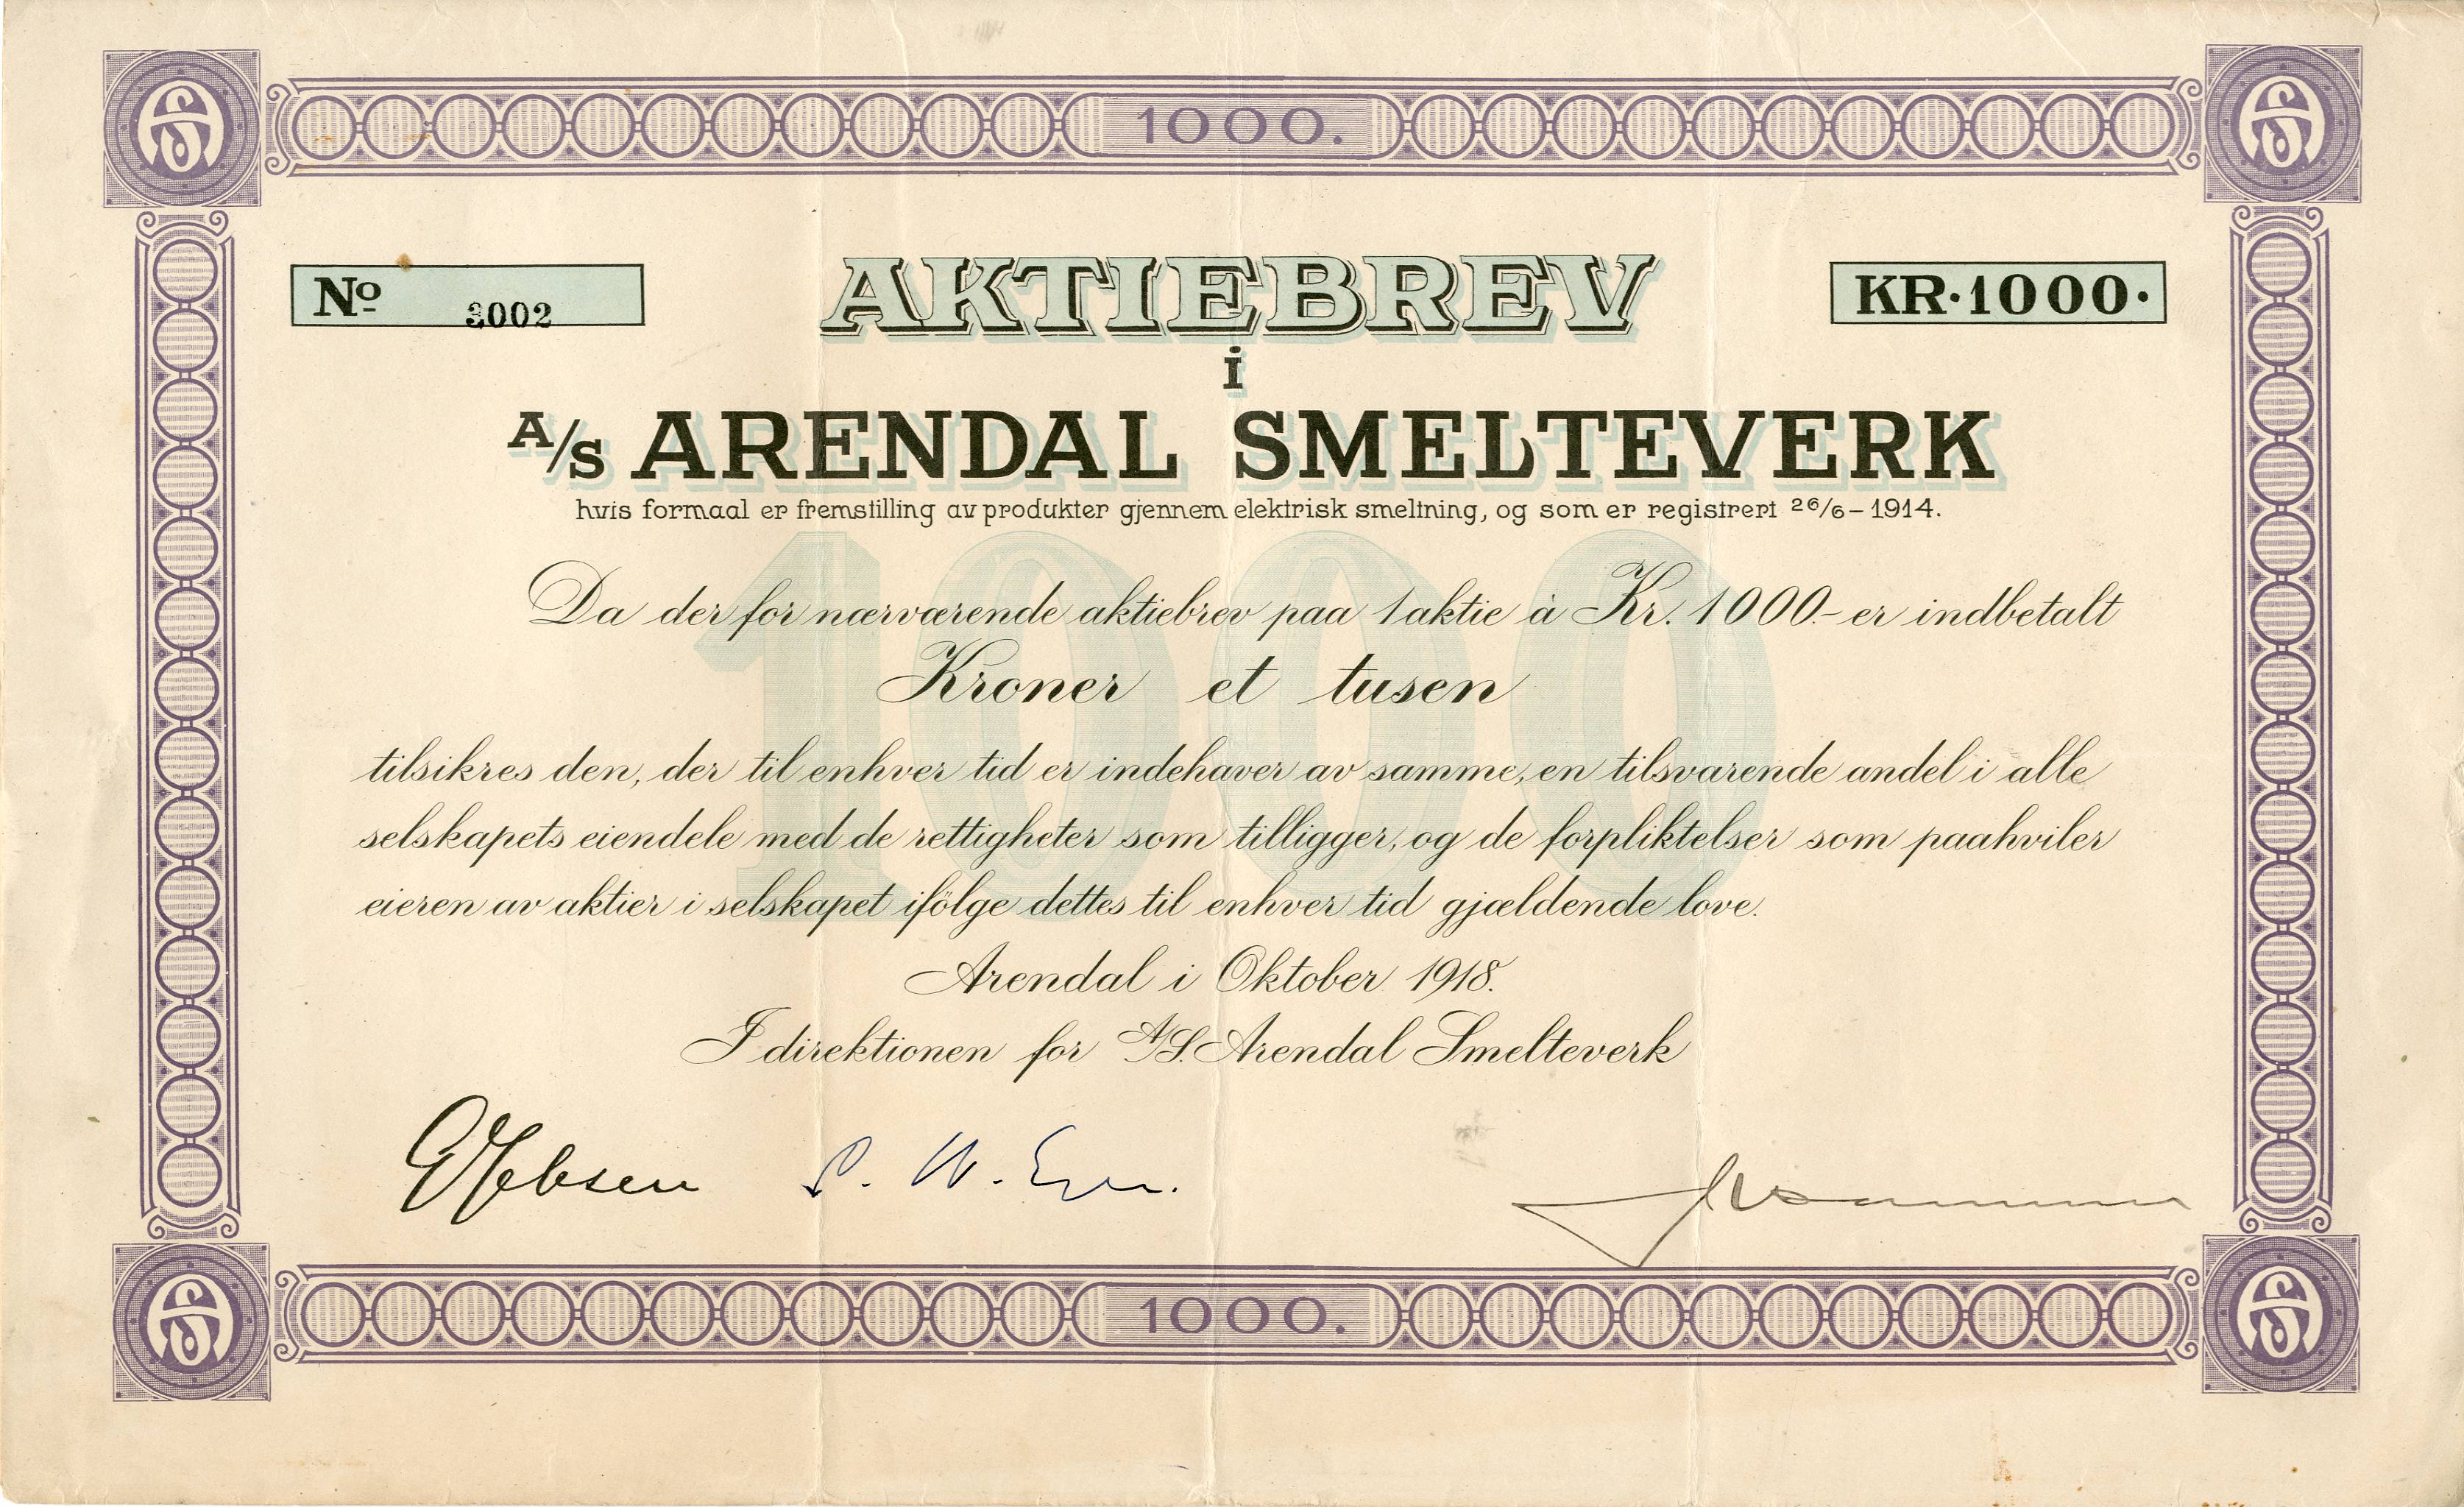 1000.
No 3002
AKTIEBREV
KR·1000·
i
A/S ARENDAL SMELTEVERK
hvis formaal er fremstilling av produkter gjennem elektrisk smeltning, og som er registrert 26/6-1914.
1000
Da der for nærværende aktiebrev paa 1 aktie à Kr. 1000.- er indbetalt
Kroner et tusen
tilsikres den, der til enhver tid er indehaver av samme, en tilsvarende andel i alle
selskapets eiendele med de rettigheter som tilligger, og de forpliktelser som paahviler
eieren av aktier i selskapet ifölge dettes til enhver tid gjældende love.
Arendal i Oktober 1918.
I direktionen for A/S. Arendal Smelteverk
G Jebsen
1000.